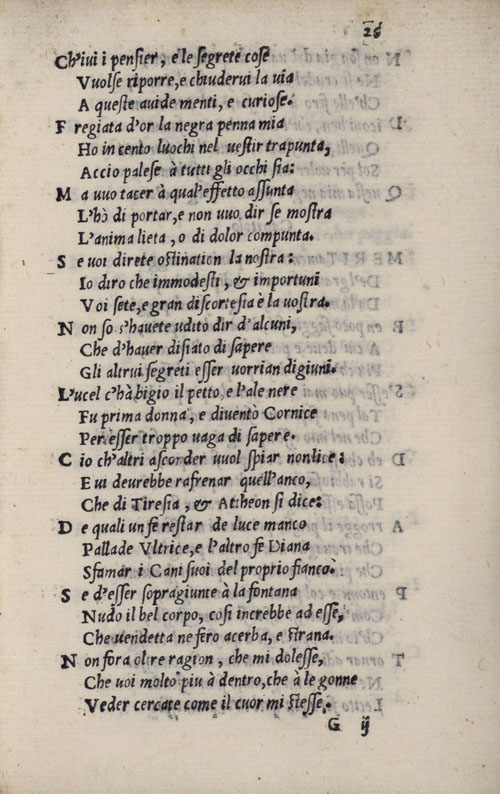 26
Ch'iui i pensier, e le segrete cose
Vuolse riporre, e chiuderui la uia
A queste auide menti, e curiose.
F regiata d'or la negra penna mia
Ho in cento luochi nel uestir trapunta,
Accio palese à tutti gli occhi sia:
M a uuo tacer à qual'effetto assunta
L'hò di portar, e non uuo dir se mostra
L'anima lieta, o di dolor compunta.
S e uoi direte ostination la nostra:
Io diro che immodesti, & importuni
Voi sete, e gran discortesia è la uostra.
N on so s'hauete udito dir d'alcuni,
Che d'hauer disiato di sapere
Gli altrui segreti esser uorrian digiuni.
L'ucel c'hà bigio il petto, e l'ale nere
Fu prima donna, e diuentò Cornice
Per esser troppo uaga di sapere.
C io ch'altri asconder uuol spiar non lice:
E ui deurebbe rafrenar quell'anco,
Che di Tiresia, & Atheon si dice:
D e quali un fè restar de luce manco
Pallade Vltrice, e l'altro fè Diana
Sfamar i Cani suoi del proprio fianco.
S e d'esser sopragiunte à la fontana
Nudo il bel corpo, cosi increbbe ad esse,
Che uendetta ne fero acerba, e strana.
N on fora oltre ragion, che mi dolesse,
Che uoi molto piu à dentro, che à le gonne
Veder cercate come il cuor mi stesse.
G ij